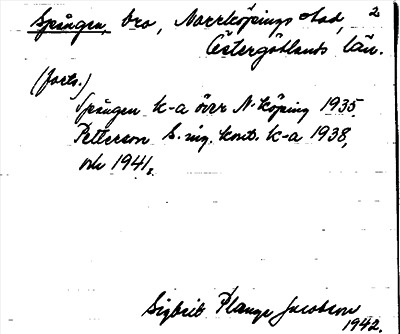 Spången, bro, Norrköpings stad, 2
Östergötlands län.
(forts.)
Spången k-a över N-köping 1935.
Petterson s. ing. kont. k-a 1938,
och 1941.
Sigbrit Plænge Jacobson
1942.